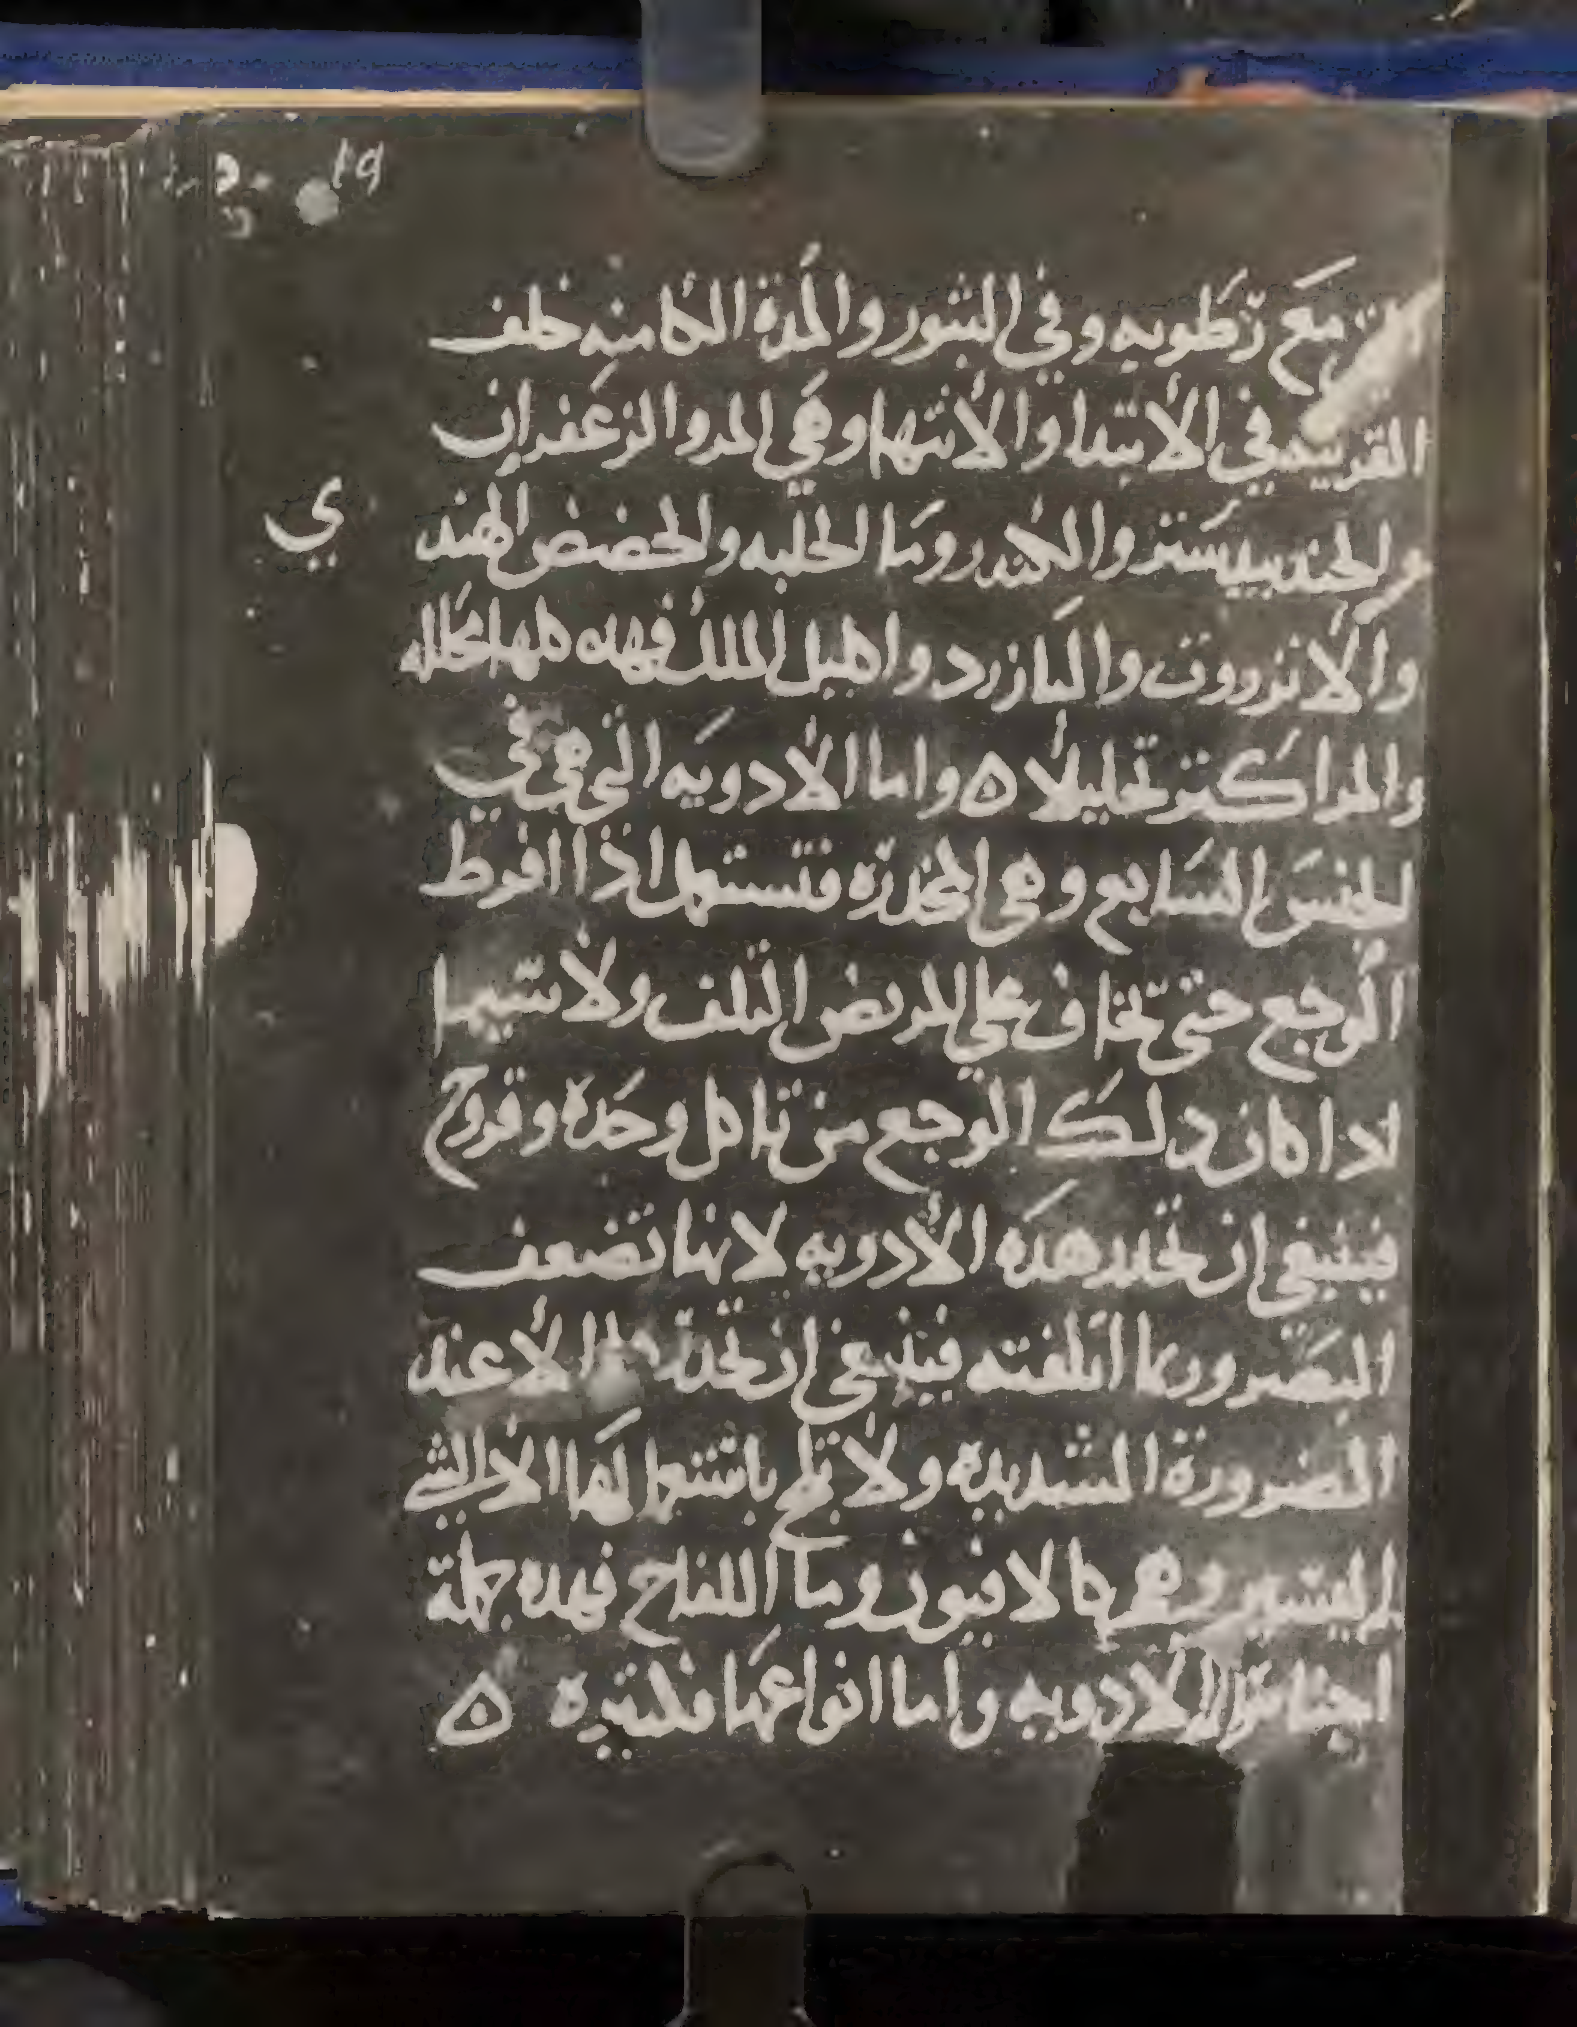 19
مع رطوبه وفي البثور والمدة الكامنه خلف
القرنيه في الابتدا والانتها وهي المر والزعفران
والجندبيدستر والكندر وما الحلبه والحضض الهند
ي
والانزروت والبازرد واكليل الملك فهده كلها محلله
والمر اكثر تحليلا ه واما الادويه التي هي في
الجنس السابع وهي المخدره فتستعمل اذا افرط
الوجع حتى تخاف علي المريض التلف ولا سيما
ادا كان دلك الوجع من تاكل وحده وقروح
فينبغي ان تحدر هده الادويه لانها تضعف
البصر وربما اتلفته فينبغي ان الا عند
الضرورة الشديده ولا تلح باستعمالها الا الشي
اليسير وهي كالافيون وما اللفاح فهده جملة
اجناس الادويه واما انواعها فكثيره ه